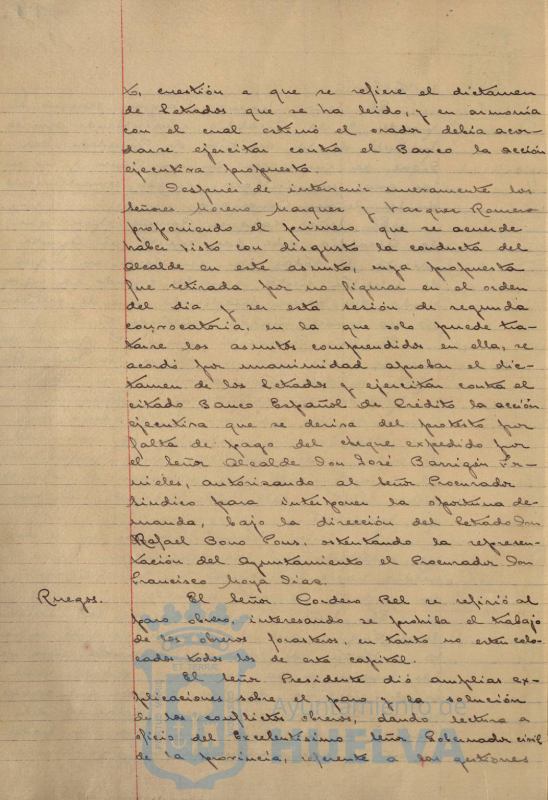 to, cuestión a que se refiere el dictamen
de Letrados que se ha leido, y en armonía
con el cual estimó el orador debía acor-
darse ejercitar contra el Banco la acción
ejecutiva propuesta.
Después de intervenir nuevamente los
Señores Moreno Marquez y Vazquez Romero
proponiendo el primero que se acuerde
haber visto con disgusto la conducta del
Alcalde en este asunto, cuya propuesta
fue retirada por no figurar en el orden
del dia y ser esta sesión de segunda
convocatoria, en la que solo puede tra-
tarse los asuntos comprendidos en ella, se
acordó por unanimidad aprobar el dic-
tamen de los Letrados y ejercitar contra el
citado Banco Español de Crédito la acción
ejecutiva que se deriva del protesto por
falta de pago del cheque expedido por
el Señor Alcalde Don José Barrigón For-
nieles, autorizando al Señor Procurador
Síndico para interponer la oportuna de-
manda, bajo la dirección del Letrado Don
Rafael Bono Pons, ostentando la represen-
tación del Ayuntamiento el Procurador Don
Francisco Moya Diaz.
Ruegos. El Señor Cordero Bel se refirió al
paro obrero, interesando se prohiba el trabajo
de los obreros forasteros, en tanto no esten colo-
cados todos los de esta capital.
El Señor Presidente dió amplias ex-
plicaciones sobre el paro y la solución
de los conflictos obreros, dando lectura a
oficio del Excelentísimo Señor Gobernador civil
de la provincia, referente a las gestiones
Ayuntamiento de
HUELVA